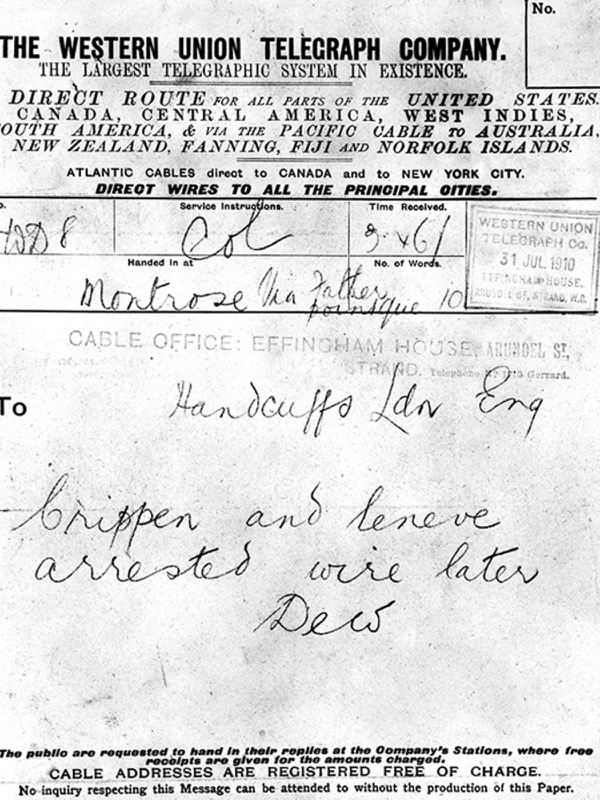 No.
THE WESTERN UNION TELEGRAPH COMPANY.
THE LARGEST TELEGRAPHIC SYSTEM IN EXISTENCE.
DIRECT ROUTE FOR ALL PARTS OF THE UNITED STATES.
CANADA, CENTRAL AMERICA, WEST INDIES,
SOUTH AMERICA, & VIA THE PACIFIC CABLE to AUSTRALIA,
NEW ZEALAND, FANNING, FIJI AND NORFOLK ISLANDS.
ATLANTIC CABLES direct to CANADA and to NEW YORK CITY.
DIRECT WIRES TO ALL THE PRINCIPAL CITIES.
Service Instructions. Time Received.
8 Col
WESTERN UNION
TELEGRAPH Co.
31 JUL 1910
EFFINGHAM HOUSE,
ARUNDEL ST, STRAND, W.C.
Handed in at No. of Words.
Montrose Via Father 10
CABLE OFFICE: EFFINGHAM HOUSE, ARUNDEL St,
STRAND. Telephone Gerrard.
To Handcuffs Ldn Eng
Crippen and leneve
arrested wire later
Dew
The public are requested to hand in their replies at the Company's Stations, where free
receipts are given for the amounts charged.
CABLE ADDRESSES ARE REGISTERED FREE OF CHARGE.
No inquiry respecting this Message can be attended to without the production of this Paper.